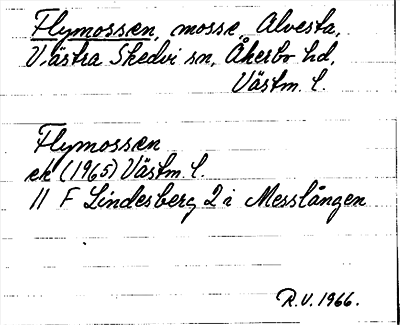 Flymossen, mosse, Alvesta,
V,ästra Skedvi sn, Åkerbo hd,
Västm. l.
Flymossen
ek (1965) Västm. l.
11 F Lindesberg 2 i Messlången
R.V. 1966.